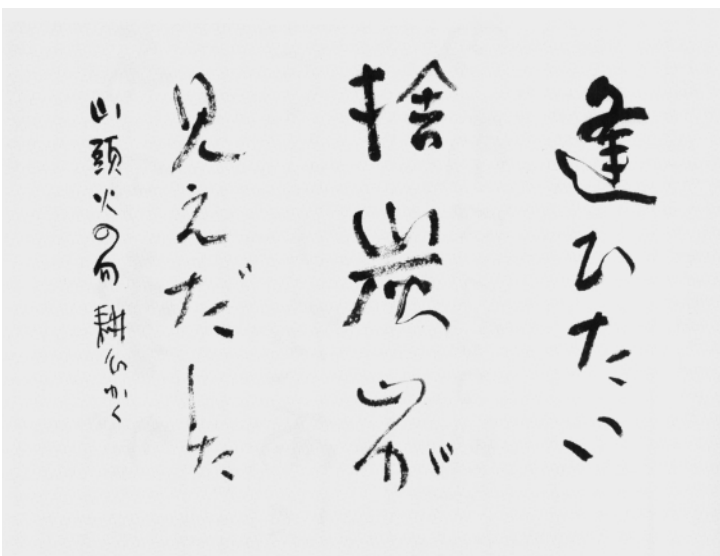 逢ひたい
捨炭山が
見えだした
山頭火の句 耕心かく